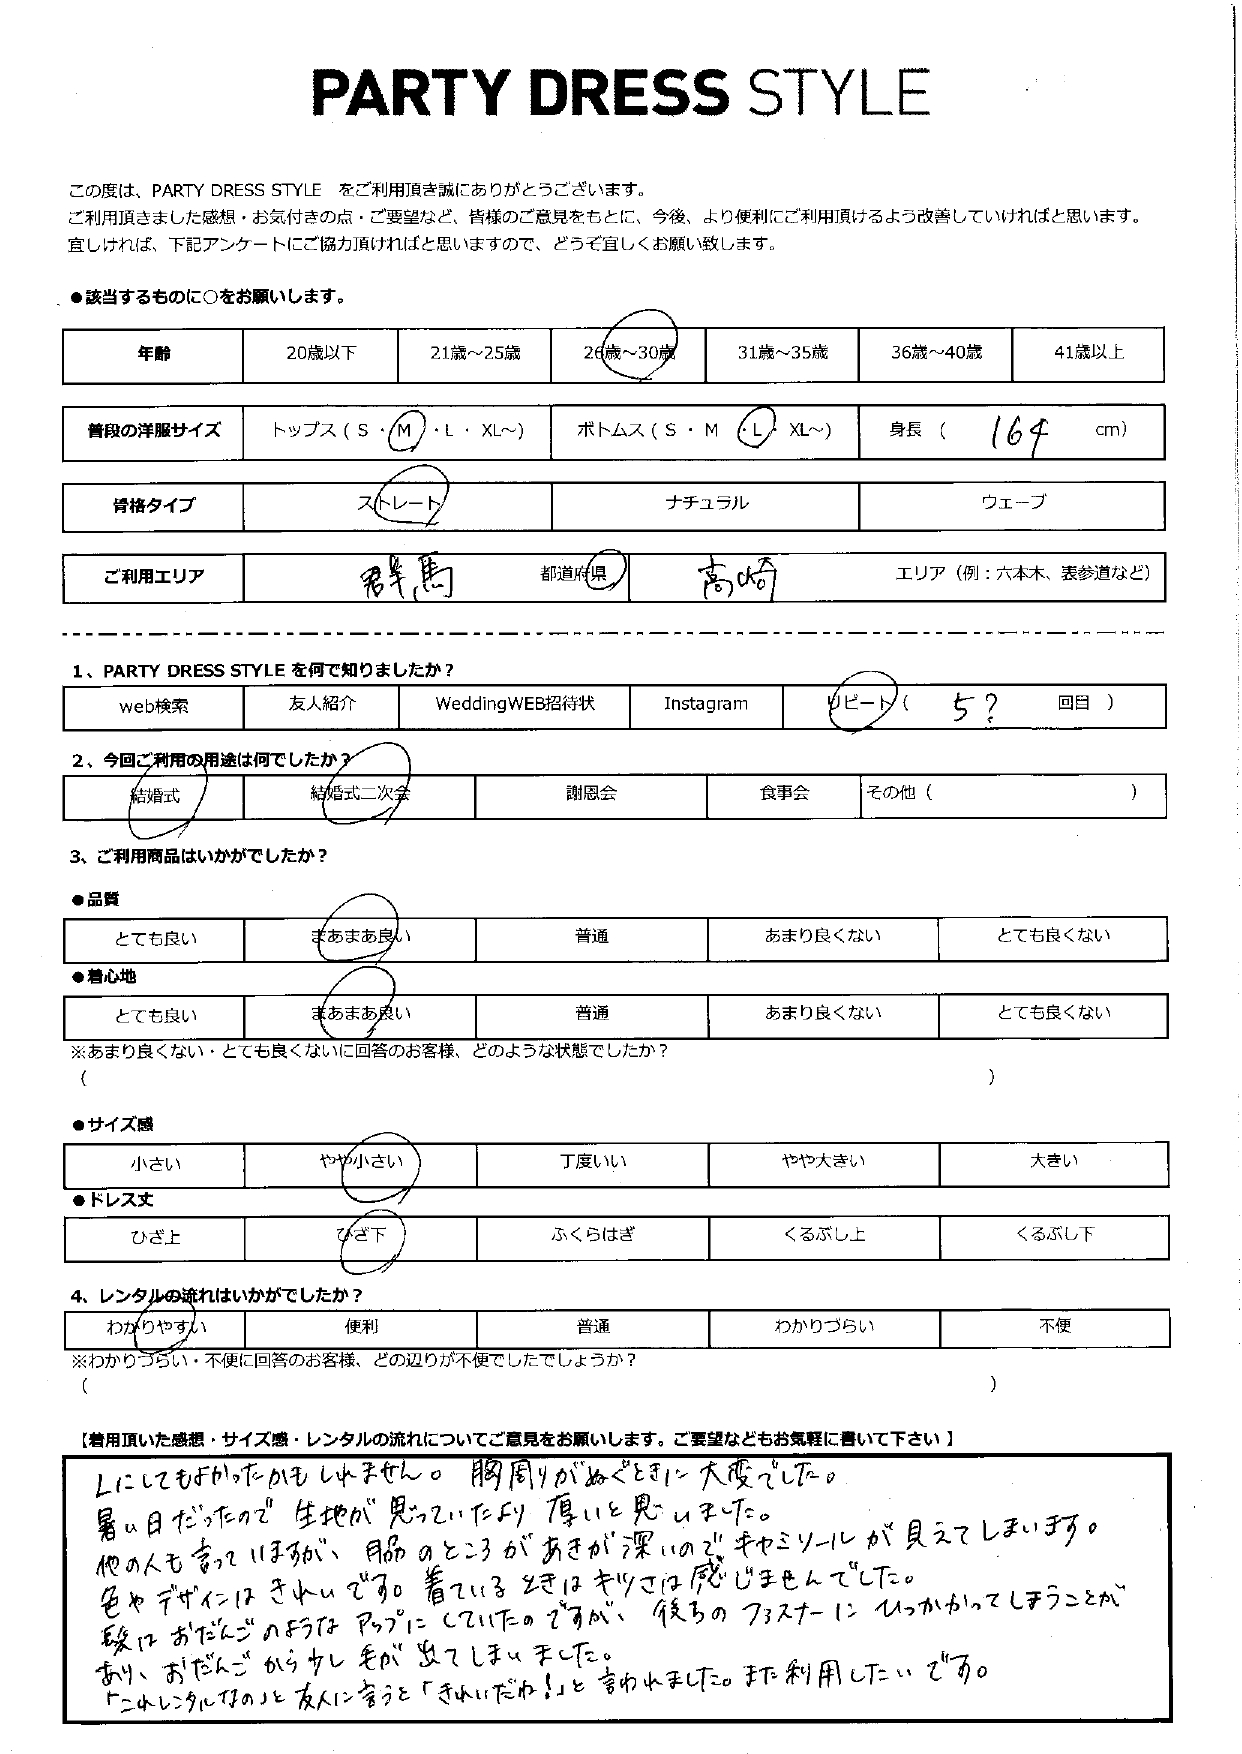 PARTY DRESS STYLE
この度は、PARTY DRESS STYLE　をご利用頂き誠にありがとうございます。
ご利用頂きました感想・お気付きの点・ご要望など、皆様のご意見をもとに、今後、より便利にご利用頂けるよう改善していければと思います。
宜しければ、下記アンケートにご協力頂ければと思いますので、どうぞ宜しくお願い致します。
●該当するものに〇をお願いします。
年齢 20歳以下 21歳～25歳 26歳～30歳 31歳～35歳 36歳～40歳 41歳以上
普段の洋服サイズ トップス ( S ・ M ・ L ・ XL～) ボトムス ( S ・ M ・ L ・ XL～) 身長 ( 164 cm)
骨格タイプ ストレート ナチュラル ウェーブ
ご利用エリア 群馬 都道府県 高崎 エリア（例：六本木、表参道など）
1、PARTY DRESS STYLE を何で知りましたか？
web検索 友人紹介 WeddingWEB招待状 Instagram リピート ( 5？ 回目 )
2、今回ご利用の用途は何でしたか？
結婚式 結婚式二次会 謝恩会 食事会 その他 ( )
3、ご利用商品はいかがでしたか？
●品質
とても良い まあまあ良い 普通 あまり良くない とても良くない
●着心地
とても良い まあまあ良い 普通 あまり良くない とても良くない
※あまり良くない・とても良くないに回答のお客様、どのような状態でしたか？
( )
●サイズ感
小さい やや小さい 丁度いい やや大きい 大きい
●ドレス丈
ひざ上 ひざ下 ふくらはぎ くるぶし上 くるぶし下
4、レンタルの流れはいかがでしたか？
わかりやすい 便利 普通 わかりづらい 不便
※わかりづらい・不便に回答のお客様、どの辺りが不便でしたでしょうか？
( )
【着用頂いた感想・サイズ感・レンタルの流れについてご意見をお願いします。ご要望などもお気軽に書いて下さい 】
Lにしてもよかったかもしれません。 胸周りがぬぐときに大変でした。
暑い日だったので 生地が 思っていたより 厚いと思いました。
他の人も言っていますが、 脇のところがあきが深いので キャミソールが見えてしまいます。
色やデザインはきれいです。着ているときはキツさは感じませんでした。
髪はおだんごのようなアップにしていたのですが、後ろのファスナーにひっかかってしまうことが
あり、おだんごから少し毛が出てしまいました。
「これレンタルなの」と友人に言うと「きれいだね！」と言われました。また利用したいです。